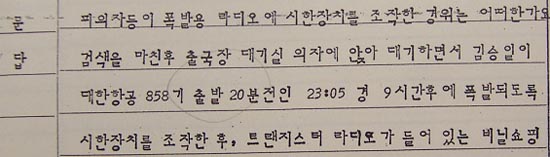 문 피의자등이 폭발용 라디오에 시한장치를 조작한 경위는 어떠한가요
답 검색을 마친후 출국장 대기실 의자에 앉아 대기하면서 김승일이
대한항공 858기 출발 20분전인 23:05 경 9시간후에 폭발되도록
시한장치를 조작한 후, 트랜지스터 라디오가 들어 있는 비닐쇼핑